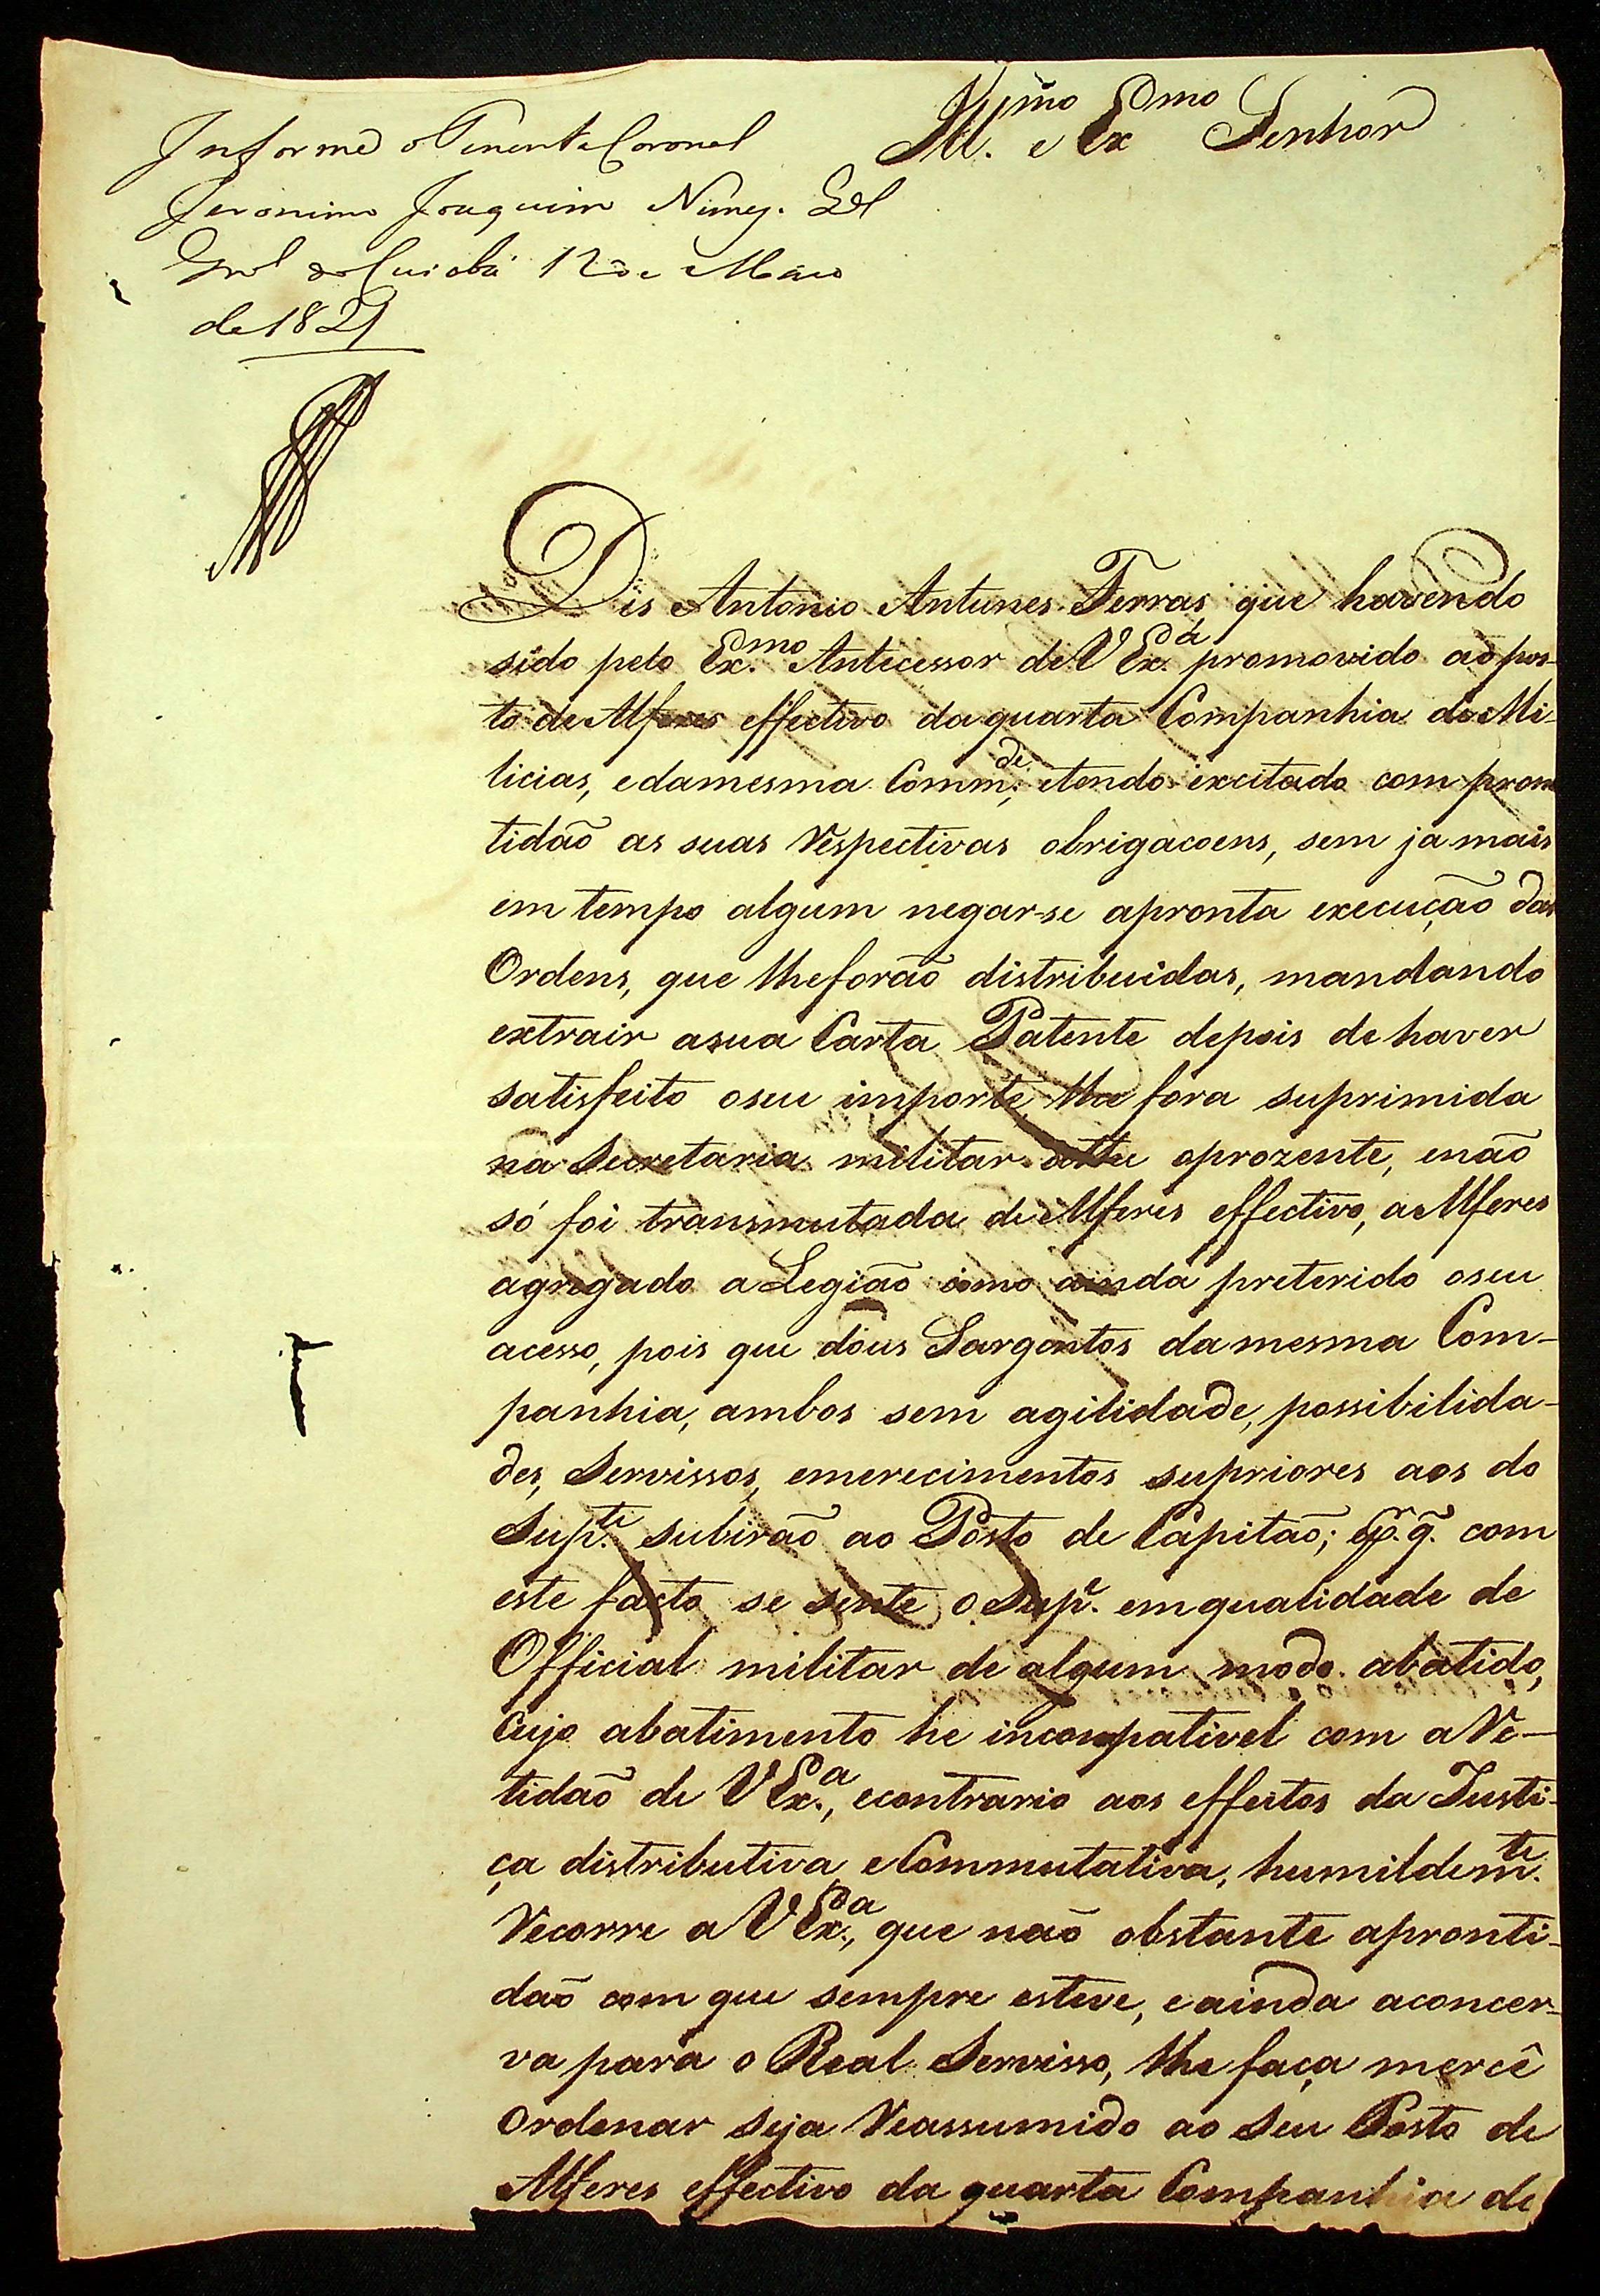 Ill.mo e Ex.mo Senhor
Informe o Tenente Coronel
Jeronimo Joaquim Nunes. Q.el
G.al do Cuiabá 12 de Maio
de 1821
Dis Antonio Antunes Ferras que havendo
sido pelo Ex.mo Antecessor de V Ex.a promovido ao pos-
to de Alferes effectivo da quarta Companhia de Mi-
licias, e da mesma Comm.de; e tendo excitado com prom
tidão as suas respectivas obrigacoens, sem ja mais
em tempo algum negar-se a pronta execução das
Ordens, que lhe forão distribuidas, mandando
extrair a sua Carta Patente depois de haver
satisfeito o seu importe, lhe fora suprimida
na Secretaria militar athe o prozente, e não
só foi transmutada de Alferes effectivo, a Alferes
agregado a Legião como ainda preterido o seu
acesso, pois que dous Sargentos da mesma Com-
panhia, ambos sem agilidade, possibilida-
des, Servissos, e merecimentos supriores aos do
Sup.te subirão ao Posto de Capitão; e p.r q̃. com
este facto se sente o Sup.e em qualidade de
Official militar de algum modo abatido,
cujo abatimento he incompativel com a Re-
tidão de V Ex.a, e contrario aos effeitos da Justi-
ça distributiva e Commutativa, humildem.te
Recorre a V Ex.a, que não obstante a pronti-
dão com que sempre esteve, e ainda a concer-
va para o Real Servisso, lhe faça mercê
Ordenar seja Reassumido ao Seu Posto de
Alferes effectivo da quarta Companhia de